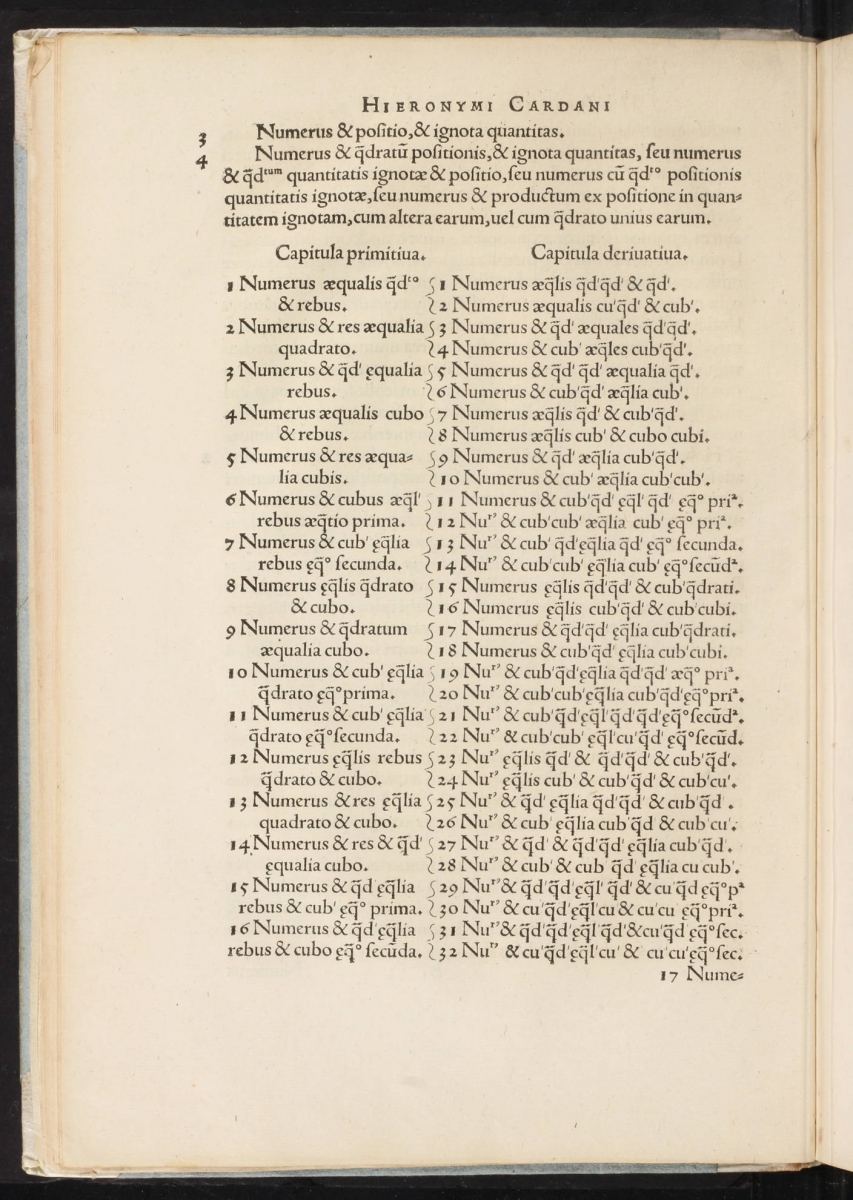 HIERONYMI CARDANI
3 Numerus & positio, & ignota quantitas.
4 Numerus & q̃dratũ positionis, & ignota quantitas, seu numerus
& q̃dᵗᵘᵐ quantitatis ignotæ & positio, seu numerus cũ q̃dᵗᵒ positionis
quantitatis ignotæ, seu numerus & productum ex positione in quan=
titatem ignotam, cum altera earum, uel cum q̃drato unius earum.
Capitula primitiua.
1 Numerus æqualis q̃dᵗᵒ
& rebus.
2 Numerus & res æqualia
quadrato.
3 Numerus & q̃d' ęqualia
rebus.
4 Numerus æqualis cubo
& rebus.
5 Numerus & res æqua=
lia cubis.
6 Numerus & cubus æq̃l'
rebus æq̃tio prima.
7 Numerus & cub' ęq̃lia
rebus ęq̃° secunda.
8 Numerus ęq̃lis q̃drato
& cubo.
9 Numerus & q̃dratum
æqualia cubo.
10 Numerus & cub' ęq̃lia
q̃drato ęq̃° prima.
11 Numerus & cub' ęq̃lia
q̃drato ęq̃° secunda.
12 Numerus ęq̃lis rebus
q̃drato & cubo.
13 Numerus & res ęq̃lia
quadrato & cubo.
14 Numerus & res & q̃d'
ęqualia cubo.
15 Numerus & q̃d' ęq̃lia
rebus & cub' ęq̃° prima.
16 Numerus & q̃d' ęq̃lia
rebus & cubo ęq̃° secũda.
Capitula deriuatiua.
1 Numerus æq̃lis q̃d'q̃d' & q̃d'.
2 Numerus æqualis cu'q̃d' & cub'.
3 Numerus & q̃d' æquales q̃d'q̃d'.
4 Numerus & cub' æq̃les cub'q̃d'.
5 Numerus & q̃d' q̃d' æqualia q̃d'.
6 Numerus & cub'q̃d' æq̃lia cub'.
7 Numerus æq̃lis q̃d' & cub'q̃d'.
8 Numerus æq̃lis cub' & cubo cubi.
9 Numerus & q̃d' æq̃lia cub'q̃d'.
10 Numerus & cub' æq̃lia cub'cub'.
11 Numerus & cub'q̃d' ęq̃l' q̃d' ęq̃° priᵃ.
12 Nuʳ' & cub'cub' æq̃lia cub' ęq̃° priᵃ.
13 Nuʳ' & cub' q̃d' ęq̃lia q̃d' ęq̃° secunda.
14 Nuʳ' & cub'cub' ęq̃lia cub' ęq̃° secũdᵃ.
15 Numerus ęq̃lis q̃d'q̃d' & cub'q̃drati.
16 Numerus ęq̃lis cub'q̃d' & cub'cubi.
17 Numerus & q̃d'q̃d' ęq̃lia cub'q̃drati.
18 Numerus & cub'q̃d' ęq̃lia cub'cubi.
19 Nuʳ' & cub'q̃d' ęq̃lia q̃d'q̃d' æq̃° priᵃ.
20 Nuʳ' & cub'cub' ęq̃lia cub'q̃d' ęq̃° priᵃ.
21 Nuʳ' & cub'q̃d' ęq̃l' q̃d'q̃d' ęq̃° secũdᵃ.
22 Nuʳ' & cub'cub' ęq̃l' cu'q̃d' ęq̃° secũd.
23 Nuʳ' ęq̃lis q̃d' & q̃d'q̃d' & cub'q̃d'.
24 Nuʳ' ęq̃lis cub' & cub'q̃d' & cub'cu'.
25 Nuʳ' & q̃d' ęq̃lia q̃d'q̃d' & cub'q̃d.
26 Nuʳ' & cub' ęq̃lia cub'q̃d & cub'cu'.
27 Nuʳ' & q̃d' & q̃d'q̃d' ęq̃lia cub'q̃d'.
28 Nuʳ' & cub' & cub' q̃d' ęq̃lia cu cub'.
29 Nuʳ' & q̃d'q̃d' ęq̃l' q̃d' & cu'q̃d ęq̃° pᵃ
30 Nuʳ' & cu'q̃d' ęq̃l' cu & cu'cu ęq̃° priᵃ.
31 Nuʳ' & q̃d'q̃d' ęq̃l' q̃d' & cu'q̃d ęq̃° sec.
32 Nuʳ' & cu'q̃d' ęq̃l' cu' & cu'cu' ęq̃° sec.
17 Nume=